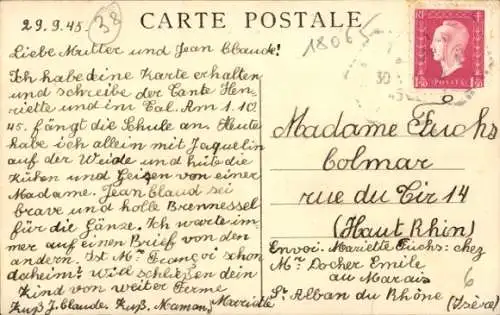 29.9.45. 38
CARTE POSTALE
18065
RF POSTES
1F50 POSTES 1F50
30
Liebe Mutter und Jean Claude!
Ich habe deine Karte erhalten
und schreibe der Tante Hen-
riette und im Cal. Am 1.10
45. fängt die Schule an. Heute
habe ich allein mit Jaquelin
auf der Weide und hüte die
Kühen und Geizen von einer
Madame. Jean Claud sei
brave und holle Brennessel
für die Gänze. Ich warte im-
mer auf einen Brief von den
andern. Ist Mr Françoi schon
daheim? will schließen dein
Kind von weiter Ferme
Kuß J. Claude. Kuß. Maman, Mariette
Madame Fuchs
Colmar
rue du Tir 14
(Haut Rhin)
Envoi: Mariette Fuchs: chez
Mr Docher Emile
au Marais
St Alban du Rhône (Isère)
6